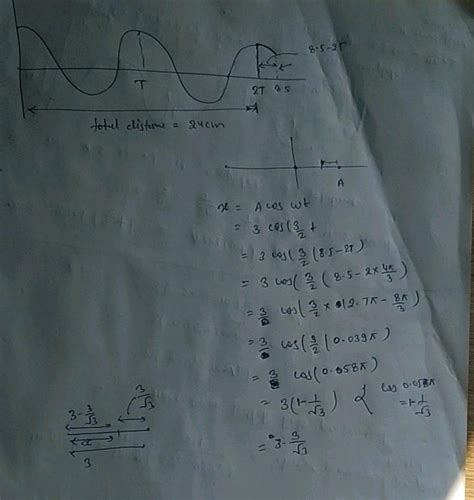 8.5-2T
T
2T
8.5
total distance = 24cm
A
x = A cos wt
= 3 cos(3/2 t
= 3 cos(3/2 (8.5-2T)
= 3 cos(3/2 (8.5-2×4π/3)
= 3 cos(3/2 × (2.7π-8π/3)
= 3 cos(3/2 (0.039π)
= 3 cos(0.058π)
= 3(1-1/√3) { cos 0.058π
=1-1/√3
= 3-3/√3
3/√3
3-3/√3
x
3